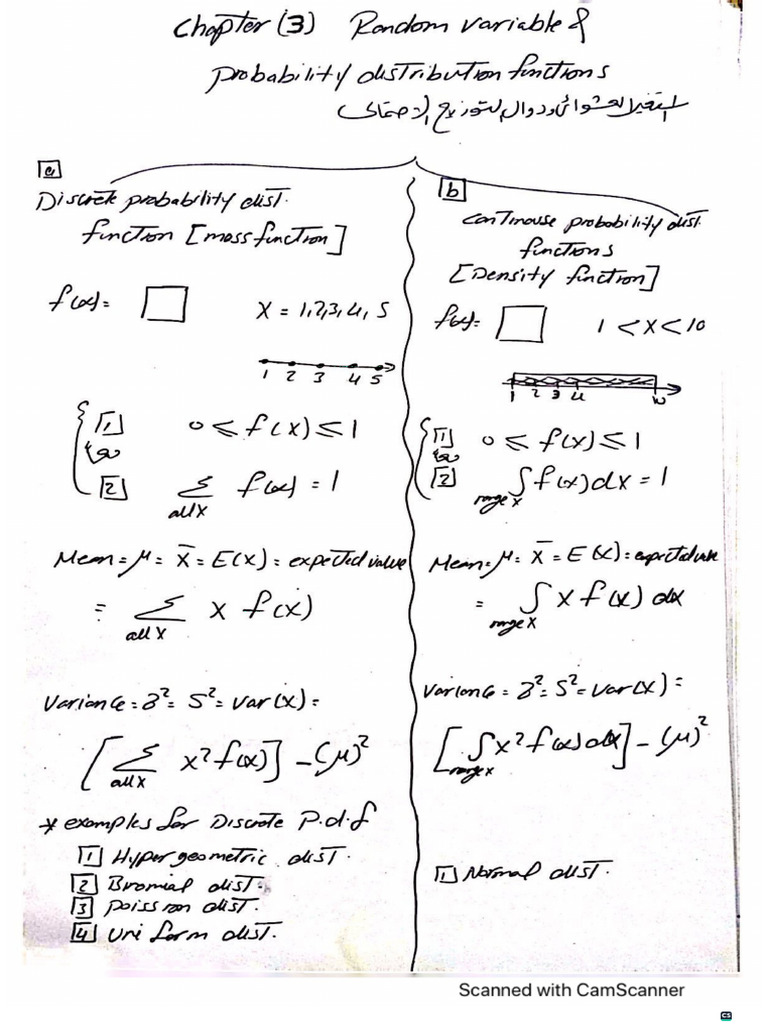 Chapter (3) Random variable &
probability distribution functions
المتغير العشوائى ودوال التوزيع الإحتمالى
a
Discrete probability dist.
function [mass function]
f(x) = □ X = 1,2,3,4,5
1 2 3 4 5
1 0 ≤ f(x) ≤ 1
2 Σ f(x) = 1
all X
Mean = μ = X̄ = E(X) = expected value
= Σ x f(x)
all X
Variance = δ² = S² = var(x) =
[Σ x² f(x)] - (μ)²
all X
* examples for Discrete P.d.f
1 Hyper geometric dist.
2 Bromial dist.
3 poission dist.
4 Uni form dist.
b
continouse probability dist.
functions
[Density function]
f(x) = □ 1 < X < 10
1 2 3 4 10
1 0 ≤ f(x) ≤ 1
2 ∫ f(x) dx = 1
range X
Mean = μ = X̄ = E(X) = expected value
= ∫ x f(x) dx
range X
Variance = δ² = S² = var(x) =
[∫ x² f(x) dx] - (μ)²
range X
1 Normal dist.
Scanned with CamScanner
CS